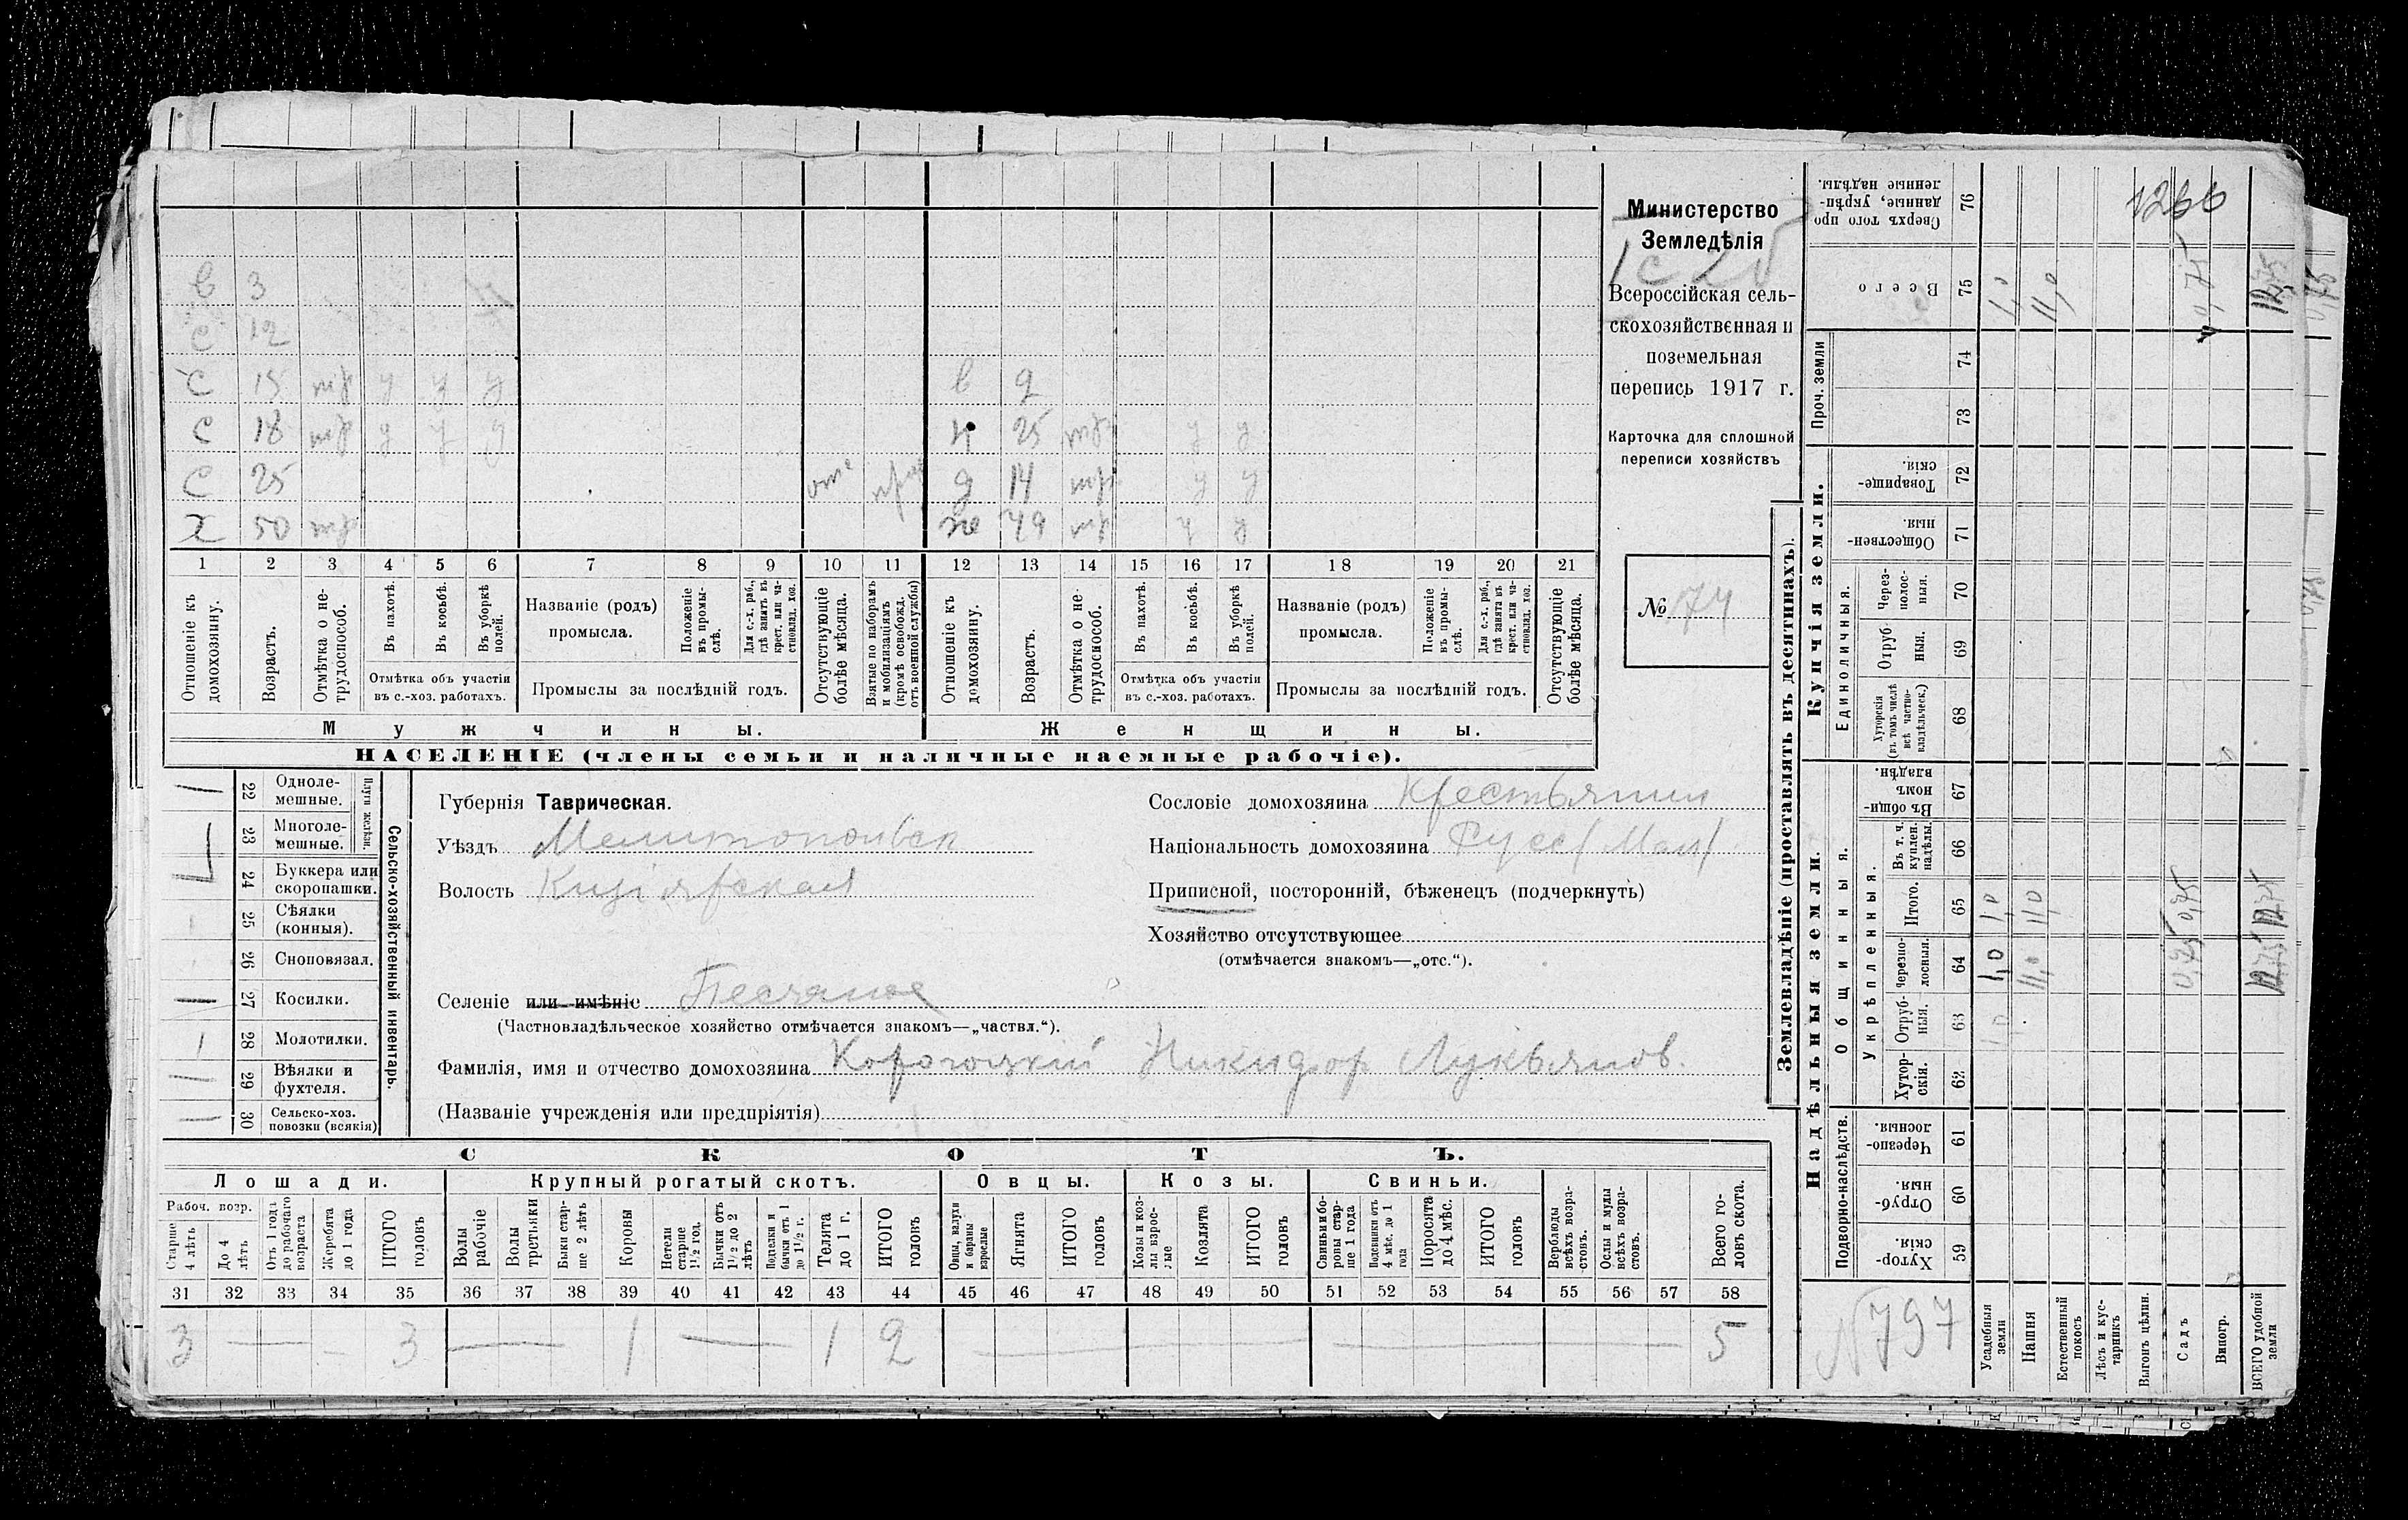 Министерство
Земледѣлія
Всероссійская сель-
скохозяйственная и
поземельная
перепись 1917 г.
Карточка для сплошной
переписи хозяйствъ
№ 74
в 3
с 12
с 15 тр у у у
в 9
с 18 тр у у у
25 тр у у
с 25 отс
д 14 тр у у
х 50 тр
ж 49 тр у у
1 2 3 4 5 6 7 8 9 10 11 12 13 14 15 16 17 18 19 20 21
Отношеніе къ домохозяину.
Возрастъ.
Отмѣтка о не-трудоспособ.
Въ пахотѣ.
Въ косьбѣ.
Въ уборкѣ полей.
Отмѣтка объ участіи
въ с.-хоз. работахъ.
Названіе (родъ)
промысла.
Положеніе въ промы-слѣ.
Для с.-х. раб., гдѣ занятъ въ крест. или ча-стновлад. хоз.
Промыслы за послѣдній годъ.
Отсутствующіе болѣе мѣсяца.
Взятые по наборамъ и мобилизаціямъ (кромѣ освобожд. отъ военной службы)
Отношеніе къ домохозяину.
Возрастъ.
Отмѣтка о не-трудоспособ.
Въ пахотѣ.
Въ косьбѣ.
Въ уборкѣ полей.
Отмѣтка объ участіи
въ с.-хоз. работахъ.
Названіе (родъ)
промысла.
Положеніе въ промы-слѣ.
Для с.-х. раб., гдѣ занята въ крест. или ча-стновлад. хоз.
Промыслы за послѣдній годъ.
Отсутствующіе болѣе мѣсяца.
Мужчины.
Женщины.
НАСЕЛЕНІЕ (члены семьи и наличные наемные рабочіе).
22 Одноле-мешные.
23 Многоле-мешные.
Плуги желѣзн.
24 Буккера или скоропашки.
25 Сѣялки (конныя).
26 Сноповязал.
27 Косилки.
28 Молотилки.
29 Вѣялки и фухтеля.
30 Сельско-хоз. повозки (всякія)
Сельско-хозяйственный инвентарь.
Губернія Таврическая.
Уѣздъ Мелитопольск
Волость Кизіярская
Селеніе или имѣніе Песчаное
(Частновладѣльческое хозяйство отмѣчается знакомъ—„частвл.“).
Фамилія, имя и отчество домохозяина Корогоцкій Никифор Лукьянов.
(Названіе учрежденія или предпріятія)
Сословіе домохозяина Крестьянин
Національность домохозяина Русс/Мал/
Приписной, посторонній, бѣженецъ (подчеркнуть)
Хозяйство отсутствующее
(отмѣчается знакомъ—„отс.“).
СКОТЪ.
Лошади.
Крупный рогатый скотъ.
Овцы.
Козы.
Свиньи.
Рабоч. возр.
Старше 4 лѣтъ
До 4 лѣтъ
Отъ 1 года до рабочаго возраста
Жеребята до 1 года
ИТОГО головъ
Волы рабочіе
Волы третьяки
Быки стар-ше 2 лѣтъ
Коровы
Нетели старше 1½ год.
Бычки отъ 1½ до 2 лѣтъ
Подтелки и бычки отъ 1 до 1½ г.
Телята до 1 г.
ИТОГО головъ
Овцы, валухи и бараны взрослые
Ягнята
ИТОГО головъ
Козы и коз-лы взрос-лые
Козлята
ИТОГО головъ
Свиньи и бо-ровы стар-ше 1 года
Подсвинки отъ 4 мѣс. до 1 года
Поросята до 4 мѣс.
ИТОГО головъ
Верблюды всѣхъ возра-стовъ.
Ослы и мулы всѣхъ возра-стовъ.
Всего го-ловъ скота.
31 32 33 34 35 36 37 38 39 40 41 42 43 44 45 46 47 48 49 50 51 52 53 54 55 56 57 58
3 — — 3 — 1 — 1 2 — — 5
Землевладѣніе (проставлять въ десятинахъ).
Купчія земли.
Надѣльныя земли.
Сверхъ того про-данные, укрѣп-ленные надѣлы. 76
1266
Всего 75 1,0 11,0 0,75 12,75
Проч. земли 74
73
Товарище-скія. 72
Обществен-ныя. 71
Единоличныя.
Через-полос-ныя. 70
Отруб-ныя. 69
Хуторскія (въ томъ числѣ всѣ частно-владѣльческ.) 68
Общинныя.
Въ общи-нномъ владѣн. 67
Укрѣпленныя.
Въ т. ч. куплен. надѣлы. 66
Итого. 65 1,0 11,0 0,75 12,75
Черезпо-лосныя. 64 1,0 11,0 0,75 12,75
Отруб-ныя. 63
Хутор-скія. 62
Подворно-наслѣдств.
Черезпо-лосныя. 61
Отруб-ныя. 60
Хутор-скія. 59
N 797
Усадебныя земли
Пашня
Естественный покосъ
Лѣсъ и кус-тарникъ
Выгонъ цѣлин.
Садъ
Виногр.
ВСЕГО удобной земли